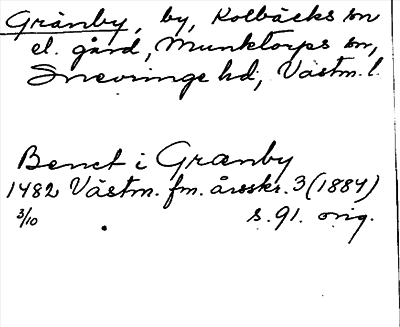 Gränby, by, Kolbäcks sn
el. gård, Munktorps sn,
Snevringe hd, Västm. l.
Benct i Grænby
1482 Västm. fm. årsskr. 3 (1884)
3/10 s. 91. orig.